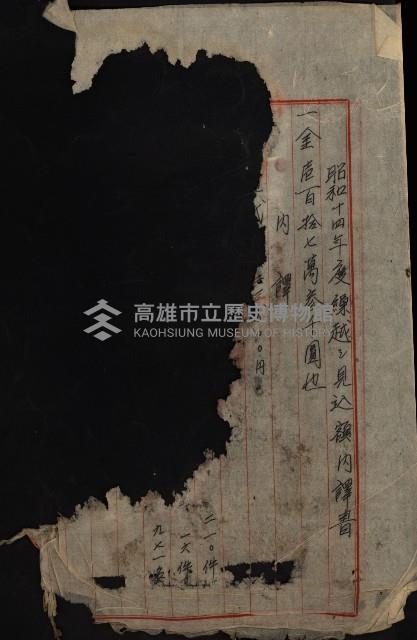 昭和十四年度繰越シ見込額内譯書
一金壱百拾七萬参千圓也
内譯
〇円
二一〇件
一六件
九七一
高雄市立歷史博物館
KAOHSIUNG MUSEUM OF HISTORY